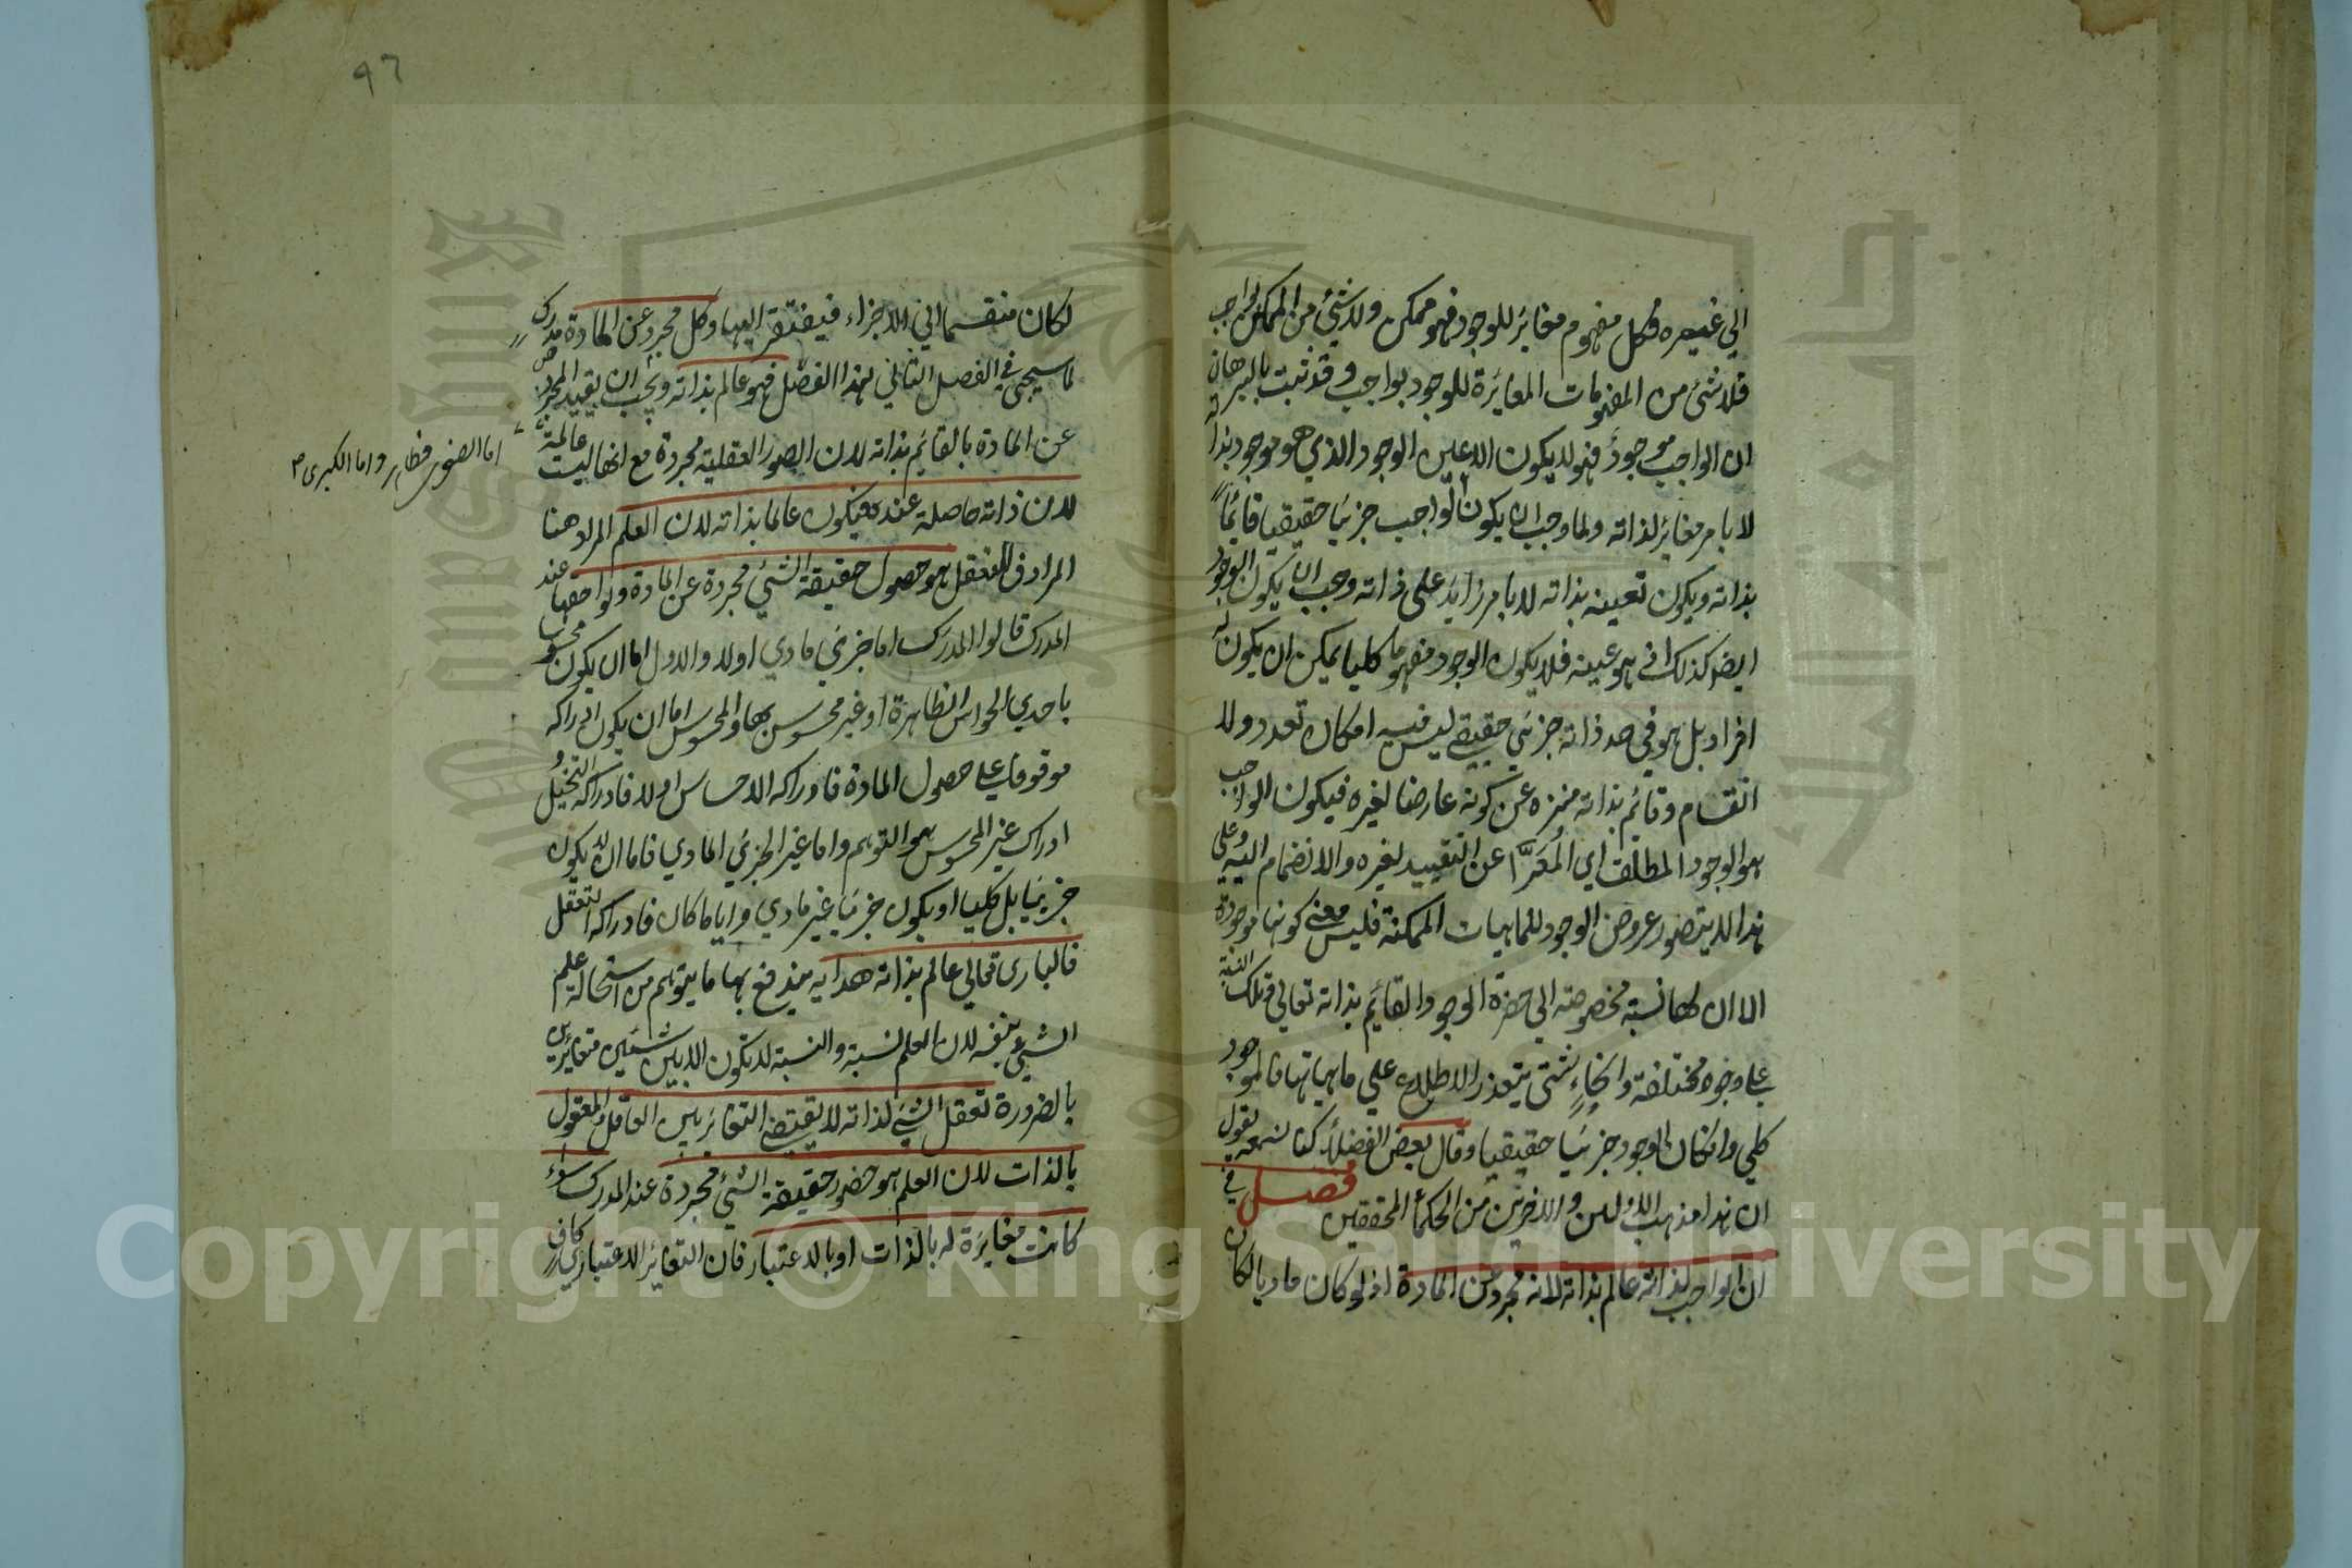 الي غيره فكل مفهوم مغاير للوجود فهو ممكن ولا شئي من الممكن بواجب
فلا شئ من المفهومات المغايرة للوجود بواجب وقد ثبت بالبرهان
ان الواجب موجود فهو لا يكون الا عين الوجود الذي هو موجود بذاته
لا بامر مغاير لذاته ولما وجب ان يكون الواجب جزئيا حقيقيا قائما
بذاته ويكون تعينه بذاته لا بامر زايد على ذاته وجب ان يكون الوجود
ايضا كذلك اذ هو عينه فلا يكون الوجود مفهوما كليا يمكن ان يكون له
افراد بل هو في حد ذاته جزئي حقيقي ليس فيه امكان تعدد ولا
انقسام وقائم بذاته منزه عن كونه عارضا لغيره فيكون الواجب
هو الوجود المطلق اي المُعَرَّا عن التقييد لغيره والانضمام اليه وعلى
هذا لا يتصور عروض الوجود للماهيات الممكنة فليس معنى كونها موجودة
الا ان لها نسبة مخصوصة الي حضرة الوجود القايم بذاته تعالي وتلك النسبة
علي وجوه مختلفة وانحاءٍ شتى يتعذر الاطلاع علي ماهياتها فالموجود
كلي وان كان الوجود جزئيا حقيقيا وقال بعض الفضلاء كنا نسمعه يقول
ان هذا مذهب الاولين والاخرين من الحكماء المحققين فصل في
ان الواجب لذاته عالم بذاته لانه مجرد عن المادة اذ لو كان ماديا لكان
٩٦
لكان منقسما الي الاجزاء فيفتقر اليها وكل مجرد عن المادة مدرك
لما سيجئ في الفصل الثاني لهذا الفصل فهو عالم بذاته ويجب ان يقيد المجرد
عن المادة بالقايم بذاته لان الصور العقلية مجردة مع انها ليست عالمة
اما الصغرى فظاهر واما الكبرى
لان ذاته حاصلة عنده فيكون عالما بذاته لان العلم المراد هنا
المرادف للتعقل هو حصول حقيقة الشئي مجردة عن المادة ولواحقها عند
المدرك قالوا المدرك اما جزئي مادي اولا والاول اما ان يكون محسوسا
باحدي الحواس الظاهرة او غير محسوس بها والمحسوس اما ان يكون ادراكه
موقوفا علي حصول المادة فادراكه الاحساس اولا فادراكه التخيل و
ادراك غير المحسوس هو التوهم واما غير الجزئي المادي فاما ان لا يكون
جزئيا بل كليا او يكون جزئيا غير مادي وايا ما كان فادراكه التعقل
فالباري تعالي عالم بذاته هدايه يندفع بها ما يتوهم من استحالة علم
الشئي بنفسه لان العلم نسبة والنسبة لا تكون الا بين شيئين متغايرين
بالضرورة تعقل الشئي لذاته لا يقتضي التغاير بين العاقل والمعقول
بالذات لان العلم هو حضور حقيقة الشئي مجردة عند المدرك سواء
كانت مغايرة له بالذات او بالاعتبار فان التغاير الاعتباري كاف
Copyright © King Saud University